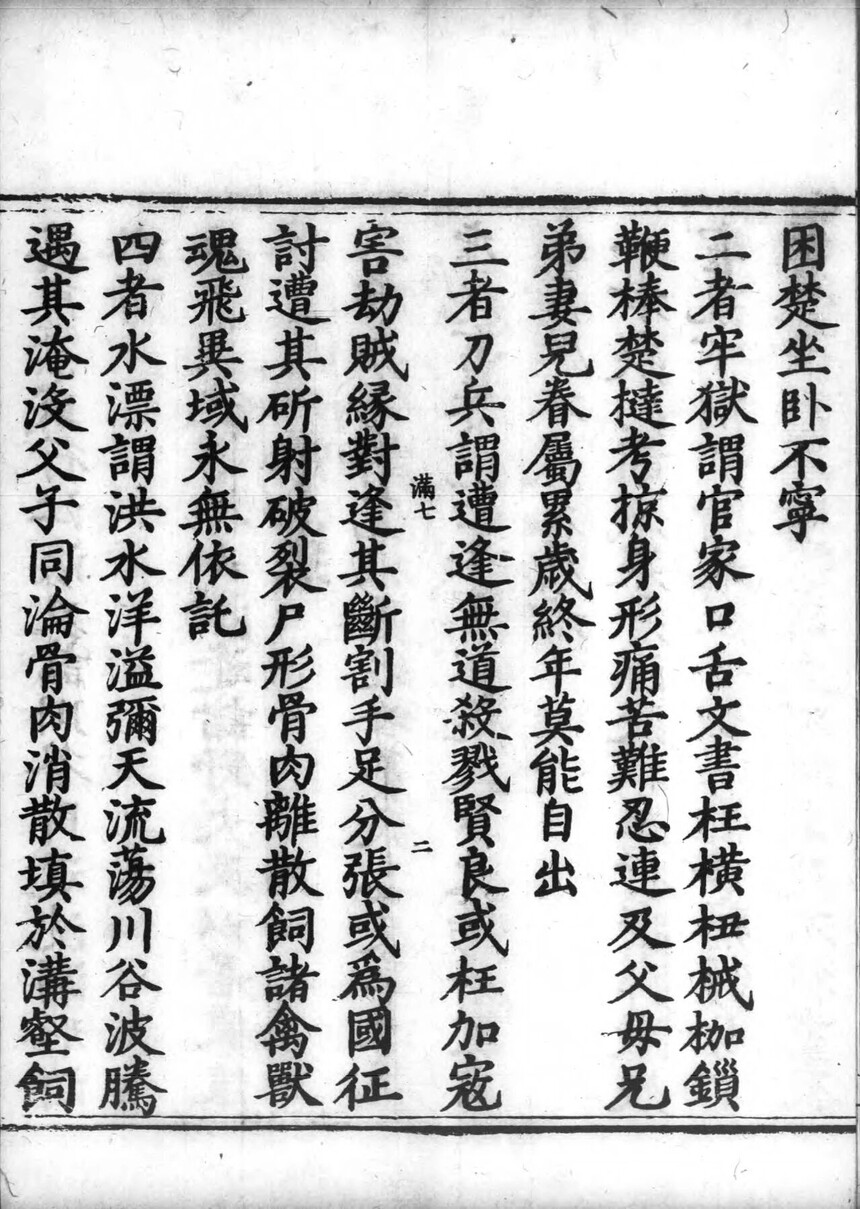 困楚坐卧不寧
二者牢獄謂官家口舌文書枉橫杻械枷鎖
鞭棒楚撻考掠身形痛苦難忍連及父母兄
弟妻兒眷屬累歲終年莫能自出
三者刀兵謂遭逢無道殺戮賢良或枉加寇
滿七
二
害劫賊緣對逢其斷割手足分張或為國征
討遭其斫射破裂尸形骨肉離散飼諸禽獸
魂飛異域永無依託
四者水漂謂洪水洋溢彌天流蕩川谷波騰
遇其淹沒父子同淪骨肉消散填於溝壑飼